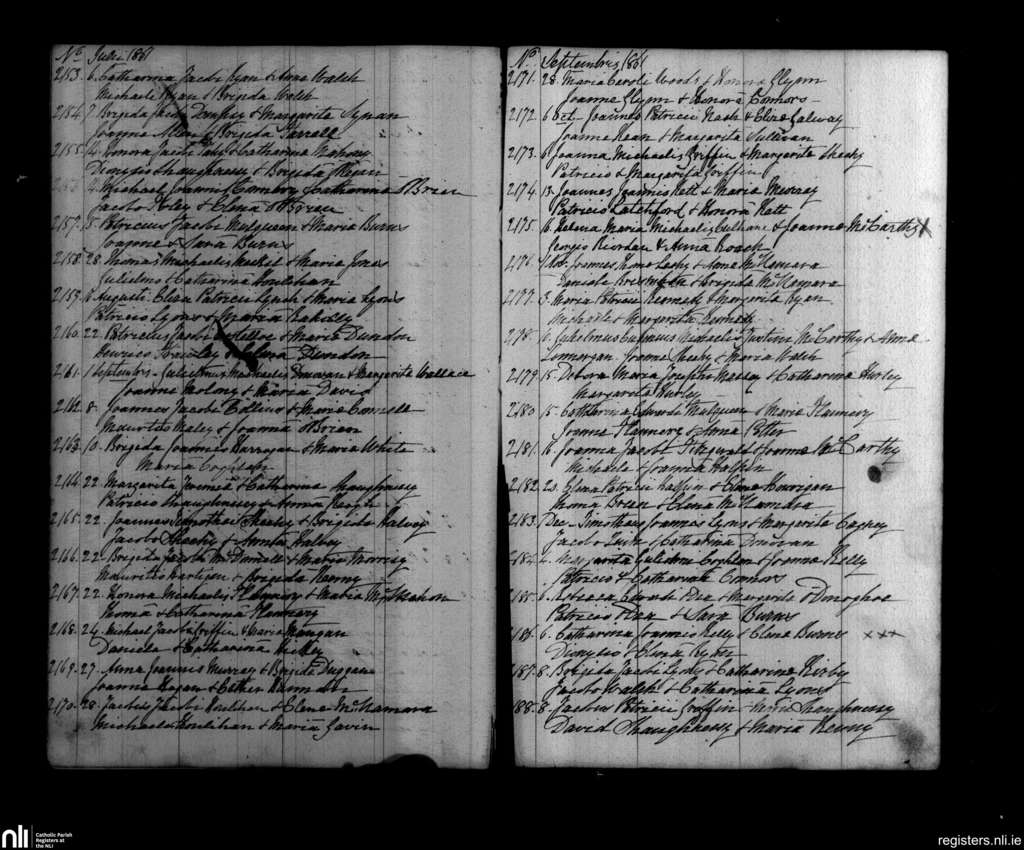 No Julii 1861
2153. 6. Catharina Jacobi Ryan & Anna Walsh
Michaele Ryan & Brigida Walsh
2154. 7. Brigida Jacobi Dempsy & Margarita Synan
Joanne Allen & Brigida Farrell
2155. 14. Honora Jacobi & Catharina Mahony
Dionysio Shaughnessy & Brigida
Michael Joannis & Catharina OBrien
Jacobo & Elena OBrien
2157. 15. Patricius Jacobi Mulqueen & Maria Burns
Joanne & Sara Burns
2158. 28. Thomas Michaelis & Maria Jones
Gulielmo & Catharina Houlihan
2159. Augusti. Eliza Patricii Lynch & Maria Lyons
Patricio Lyons & Maria
2160. 22. Patricius Jacobi & Maria Dundon
Henrico & Dundon
2161. 1 Septembris - Gulielmus Michaelis Donovan & Margarita Wallace
Joanne Molony & Maria David
2162. 8. Joannes Jacobi Collins & Maria Connell
Mauritio Haley & Joanna OBrien
2163. 10. Brigida Joannis & Maria White
Maria Coghlan
2164. 22. Margarita & Catharina Shaughnessy
Patricio Shaughnessy & Anna Keogh
2165. 22. Joannes Timothei Sheehy & Brigida Halvey
Jacobo Sheehy & Anna Halvey
2166. 22. Brigida Jacobi McDonnell & Maria
Mauritio Hartigan & Brigida
2167. 22. Honora Michaelis Flannery & Maria McMahon
Thoma & Catharina Flannery
2168. 24. Michael Jacobi Griffin & Maria Mangan
Daniele & Catharina Hickey
2169. 27. Anna Joannis Murray & Brigida Duggan
Joanne Hogan & Esther
2170. 28. Jacobus Jacobi & Elena McNamara
Michaele Houlihan & Maria Gavin
No Septembris 1861
2171. 28. Maria Caroli Woods & Honora Glynn
Joanne Glynn & Honora Connors
2172. 6 Oct. Joannes Patricii Nash & Eliza Galway
Joanne Kean & Margarita Sullivan
2173. 6. Joanna Michaelis Griffin & Margarita Sheehy
Patricio & Margarita Griffin
2174. 13. Joannes Joannis Nett & Maria Murray
Patricio Latchford & Honora Nett
2175. 16. Helena Maria Michaelis Culhane & Joanna McCarthy X
Georgio Riordan & Anna Roach
2176. 1 Nov. Joannes Thomae Leahy & Anna McNamara
Daniele & Brigida McNamara
2177. 3. Maria Patricii Kennedy & Margarita Ryan
Michaele & Margarita Kennedy
2178. 6. Gulielmus Michaelis Justini McCarthy & Anna
Lonnergan. Joanne Sheehy & Maria Walsh
2179. 15. Debora Maria Josephi Massy & Catharina Hurley
Margarita Hurley
2180. 15. Catharina Edwardi Mulqueen & Maria Flannery
Joanne Flannery & Anna Potter
2181. 16. Joanna Jacobi Fitzgerald & Joanna McCarthy
Michaele & Joanna Halpin
2182. 23. Elena Patricii Halpin & Elena Hourigan
Thoma Breen & Elena McNamara
2183. Dec. Timotheus Joannis Lyons & Margarita
Jacobo & Catharina Donovan
2184. Margarita Gulielmi Coghlan & Joanna Kelly
Patricio & Catharina Connors
2185. 6. Edwardi & Margarita ODonoghoe
Patricio & Sara Burns
2186. 6. Catharina Joannis Kelly & Elena Burns xxx
Dionysio & Elena Ryan
2187. 8. Brigida Jacobi Lyons & Catharina Kirby
Jacobo Walsh & Catharina Lyons
2188. 8. Jacobus Patricii Griffin & Maria Shaughnessy
David Shaughnessy & Maria
nli
Catholic Parish
Registers at
the NLI
registers.nli.ie